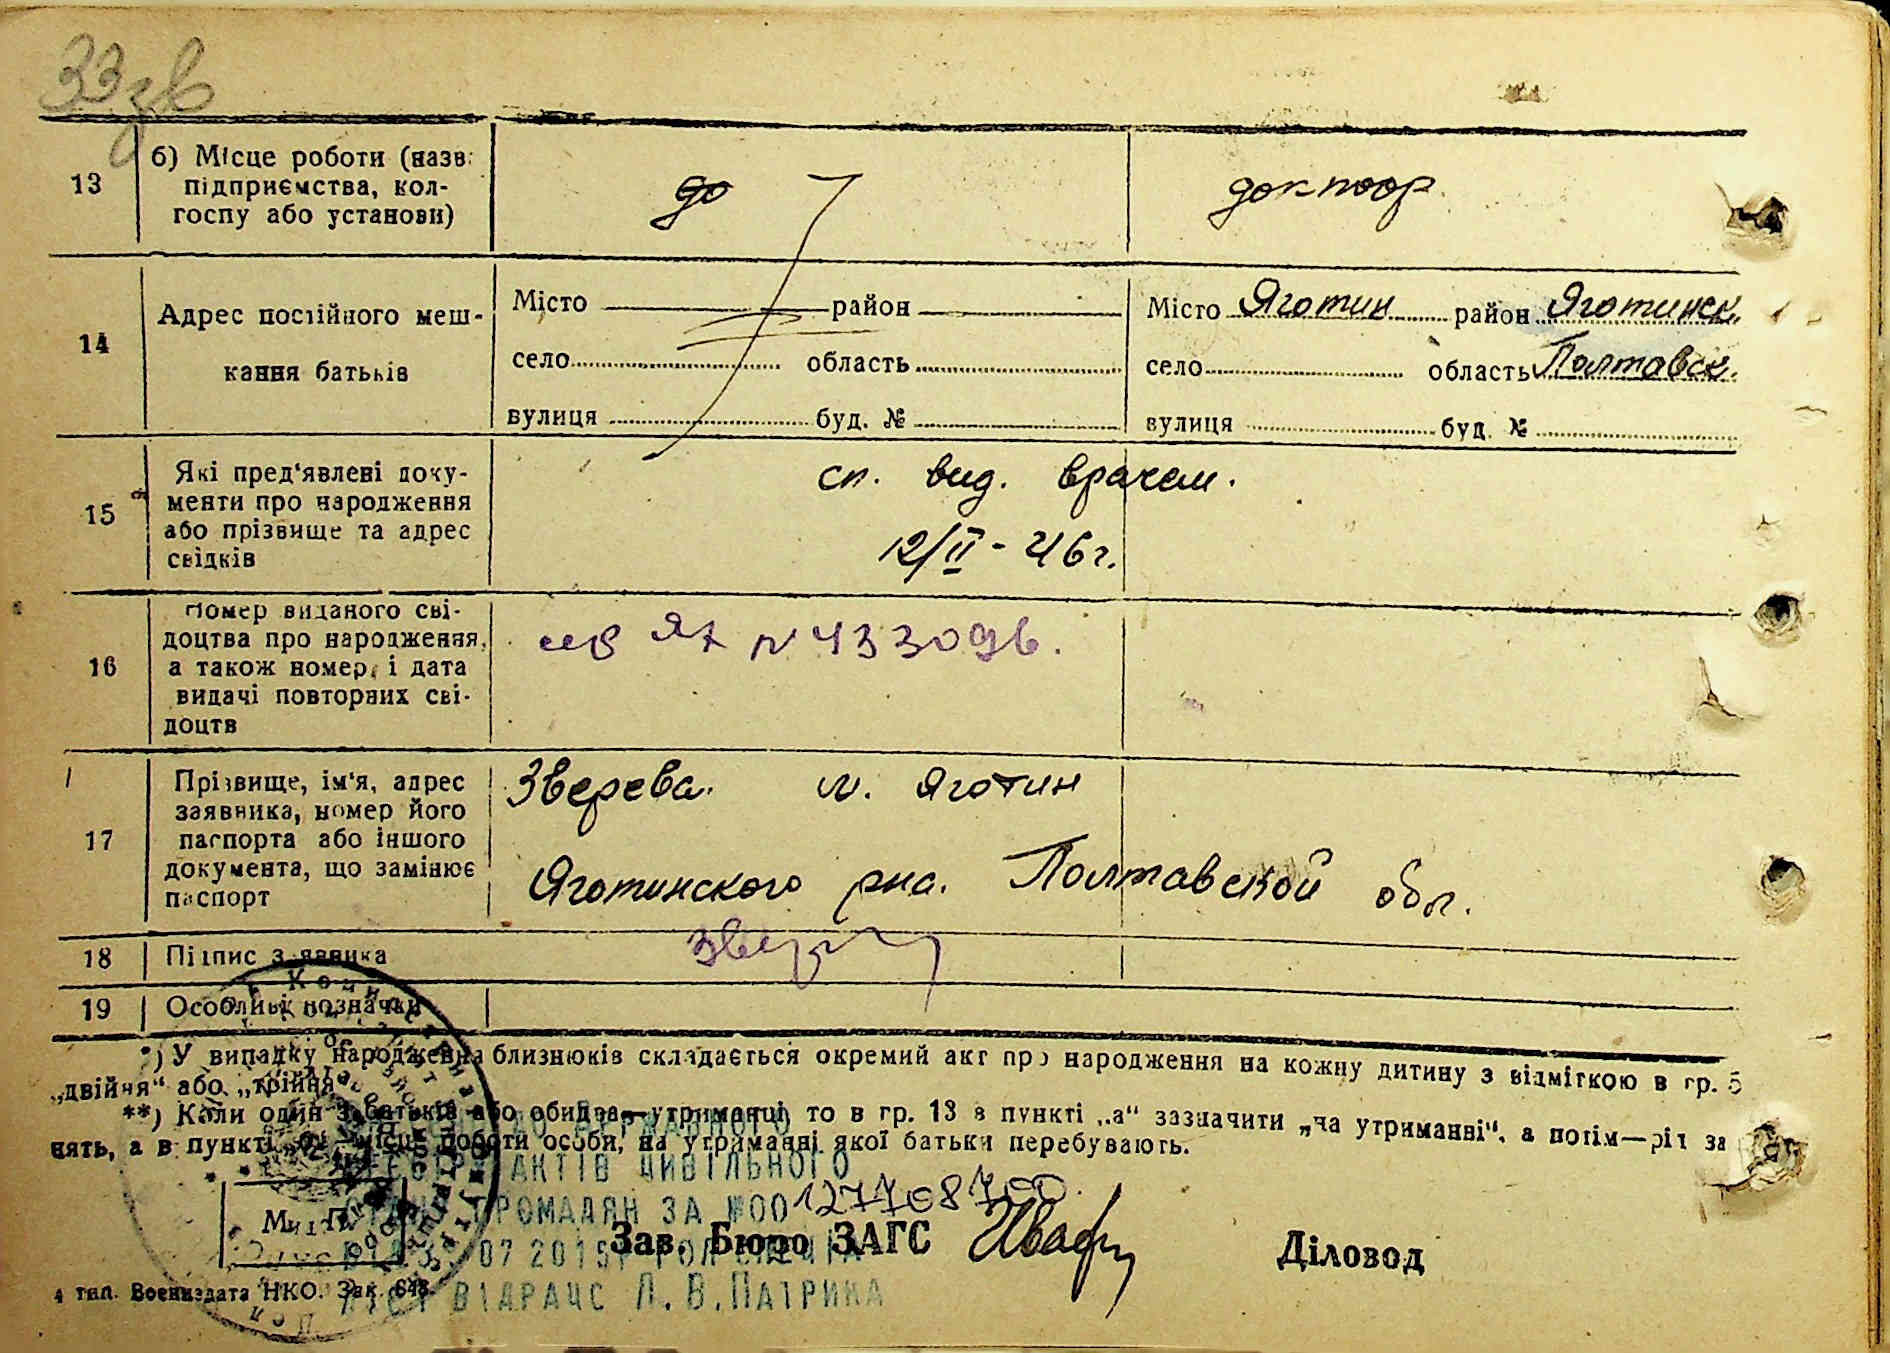 33 зв
13
б) Місце роботи (назв.
підприємства, кол-
госпу або установи)
до
доктор.
14
Адрес постійного меш-
кання батьків
Місто район
село область
вулиця буд. №
Місто Яготин район Яготинск.
село область Полтавск.
вулиця буд. №
15
Які пред'явлені доку-
менти про народження
або прізвище та адрес
свідків
сп. вид. врачем.
12/II - 46 г.
16
Номер виданого сві-
доцтва про народження,
а також номер, і дата
видачі повторних сві-
доцтв
N 433096.
17
Прізвище, ім'я, адрес
заявника, номер його
паспорта або іншого
документа, що замінює
паспорт
Зверева. м. Яготин
Яготинского рна. Полтавской обл.
18
Підпис заявника
19
Особливі позначки
*) У випадку народження близнюків складається окремий акт про народження на кожну дитину з відміткою в гр. 5
„двійня“ або „трійня“
**) Коли один з батьків або обидва—утриманці, то в гр. 13 в пункті „а“ зазначити „на утриманні“, а потім—рід за
нять, а в пункті „б“—місце роботи особи, на утриманні якої батьки перебувають.
ДЕРЖАВНОГО
АКТІВ ЦИВІЛЬНОГО
ГРОМАДЯН ЗА №00 1277708700.
М. П.
07 2015
Зав. Бюро ЗАГС
Діловод
ВІДРАЦС Л.В.ПАТРИКА
4 тип. Воениздата НКО. Зак. 648.